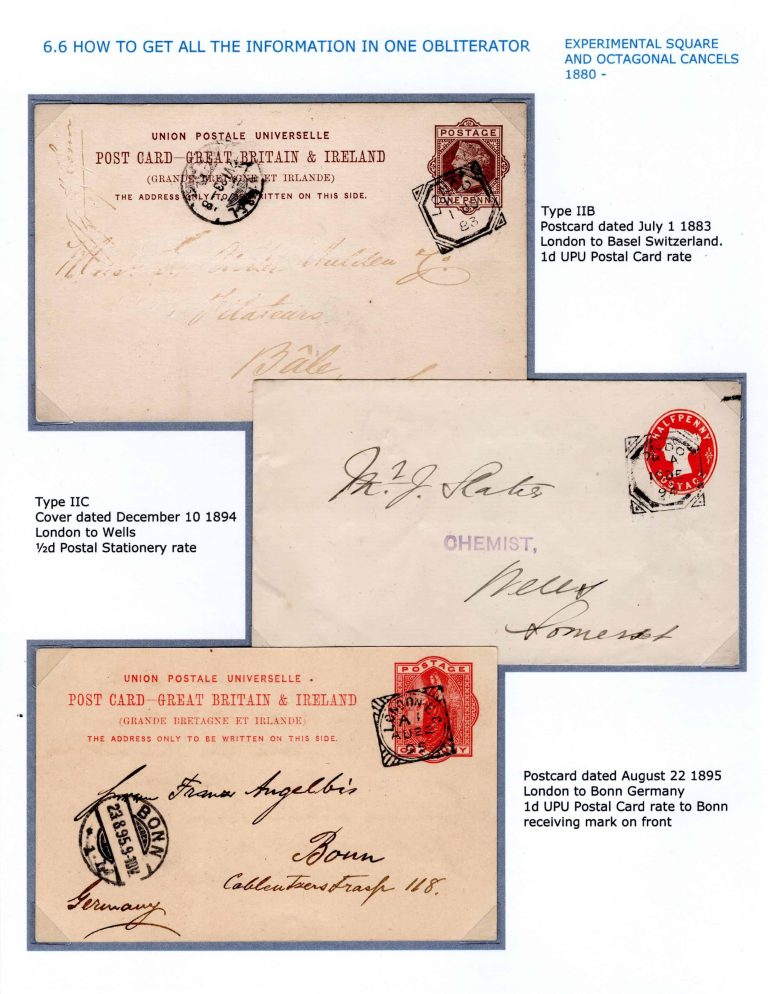 6.6 HOW TO GET ALL THE INFORMATION IN ONE OBLITERATOR
EXPERIMENTAL SQUARE
AND OCTAGONAL CANCELS
1880 -
UNION POSTALE UNIVERSELLE
POST CARD–GREAT BRITAIN & IRELAND
(GRANDE BRETAGNE ET IRLANDE)
THE ADDRESS ONLY TO BE WRITTEN ON THIS SIDE.
POSTAGE
ONE PENNY
83
Bâle
Type IIB
Postcard dated July 1 1883
London to Basel Switzerland.
1d UPU Postal Card rate
HALFPENNY
POSTAGE
Mr J. Slater
CHEMIST,
Wells
Somerset
Type IIC
Cover dated December 10 1894
London to Wells
½d Postal Stationery rate
UNION POSTALE UNIVERSELLE
POST CARD–GREAT BRITAIN & IRELAND
(GRANDE BRETAGNE ET IRLANDE)
THE ADDRESS ONLY TO BE WRITTEN ON THIS SIDE.
POSTAGE
LONDON E.C.
A 1
AU 22
95
Franz Angelbis
Bonn
Coblentzerstrasse 168.
Germany
BONN
23.8.95.9-10V.
Postcard dated August 22 1895
London to Bonn Germany
1d UPU Postal Card rate to Bonn
receiving mark on front